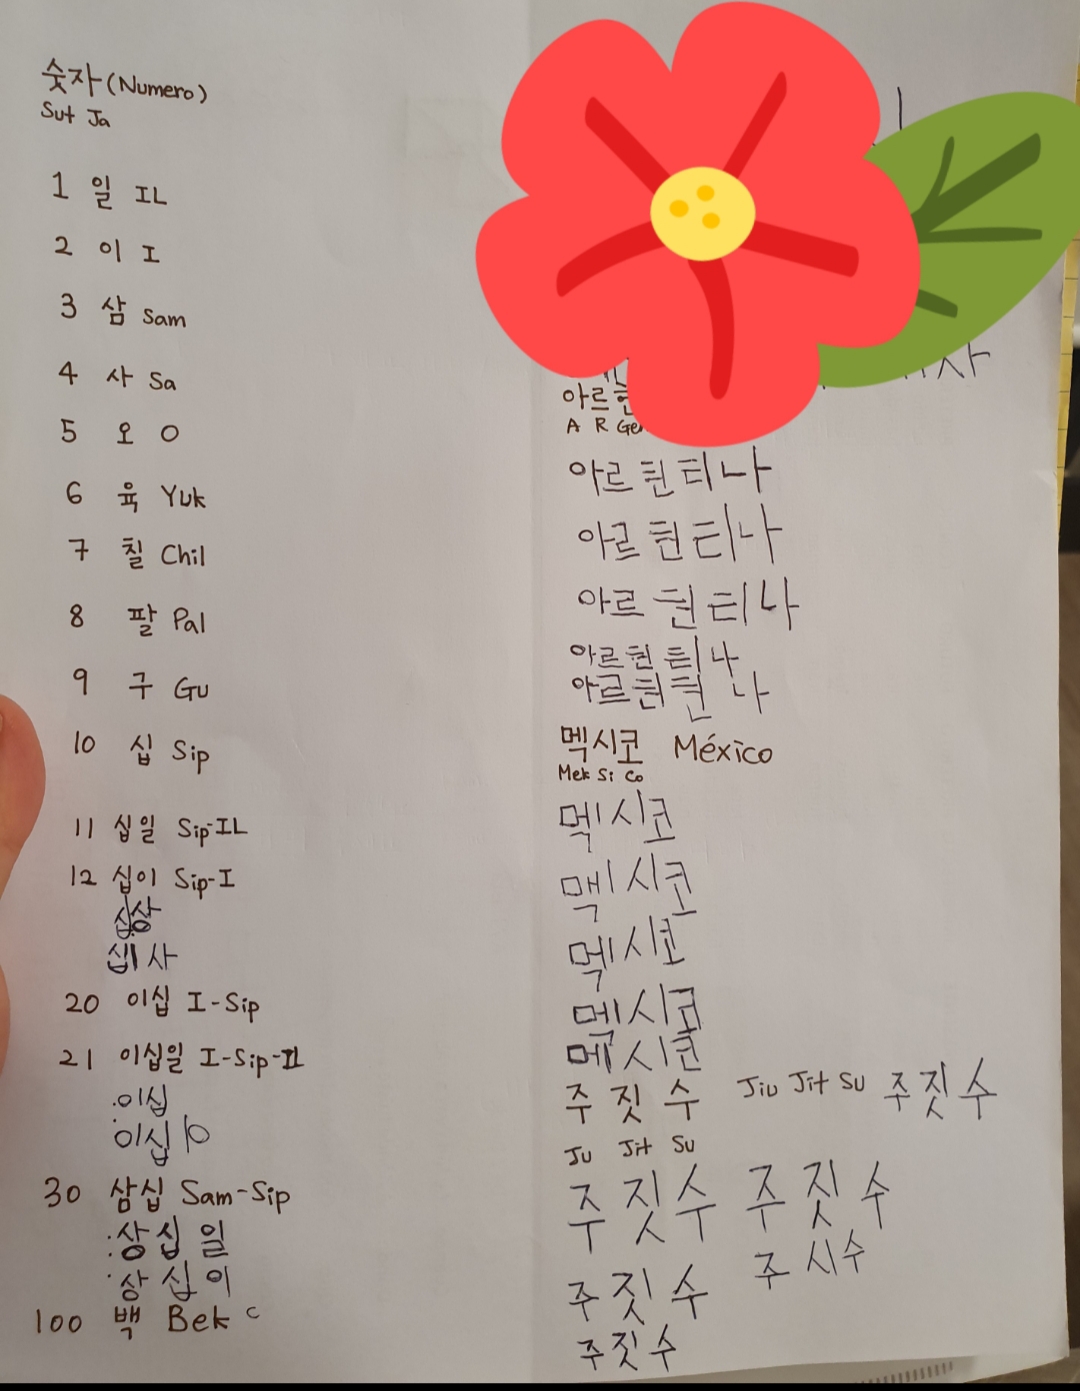 숫자 (Numero)
Sut Ja
1 일 IL
2 이 I
3 삼 Sam
4 사 Sa
5 오 O
6 육 Yuk
7 칠 Chil
8 팔 Pal
9 구 Gu
10 십 Sip
11 십일 Sip-IL
12 십이 Sip-I
십상
십사
20 이십 I-Sip
21 이십일 I-Sip-IL
이십
이십
30 삼십 Sam-Sip
:상십일
:상십이
100 백 Bek c
아르
A R
아르헌티나
아르헌티나
아르헌티나
아르헌티나
아르 나
멕시코 México
Mek Si Co
멕시코
멕시코
멕시코
멕시코
멕시코
주짓수 Jiu Jit Su 주짓수
Ju Jit Su
주짓수 주짓수
주시수
주짓수
주짓수